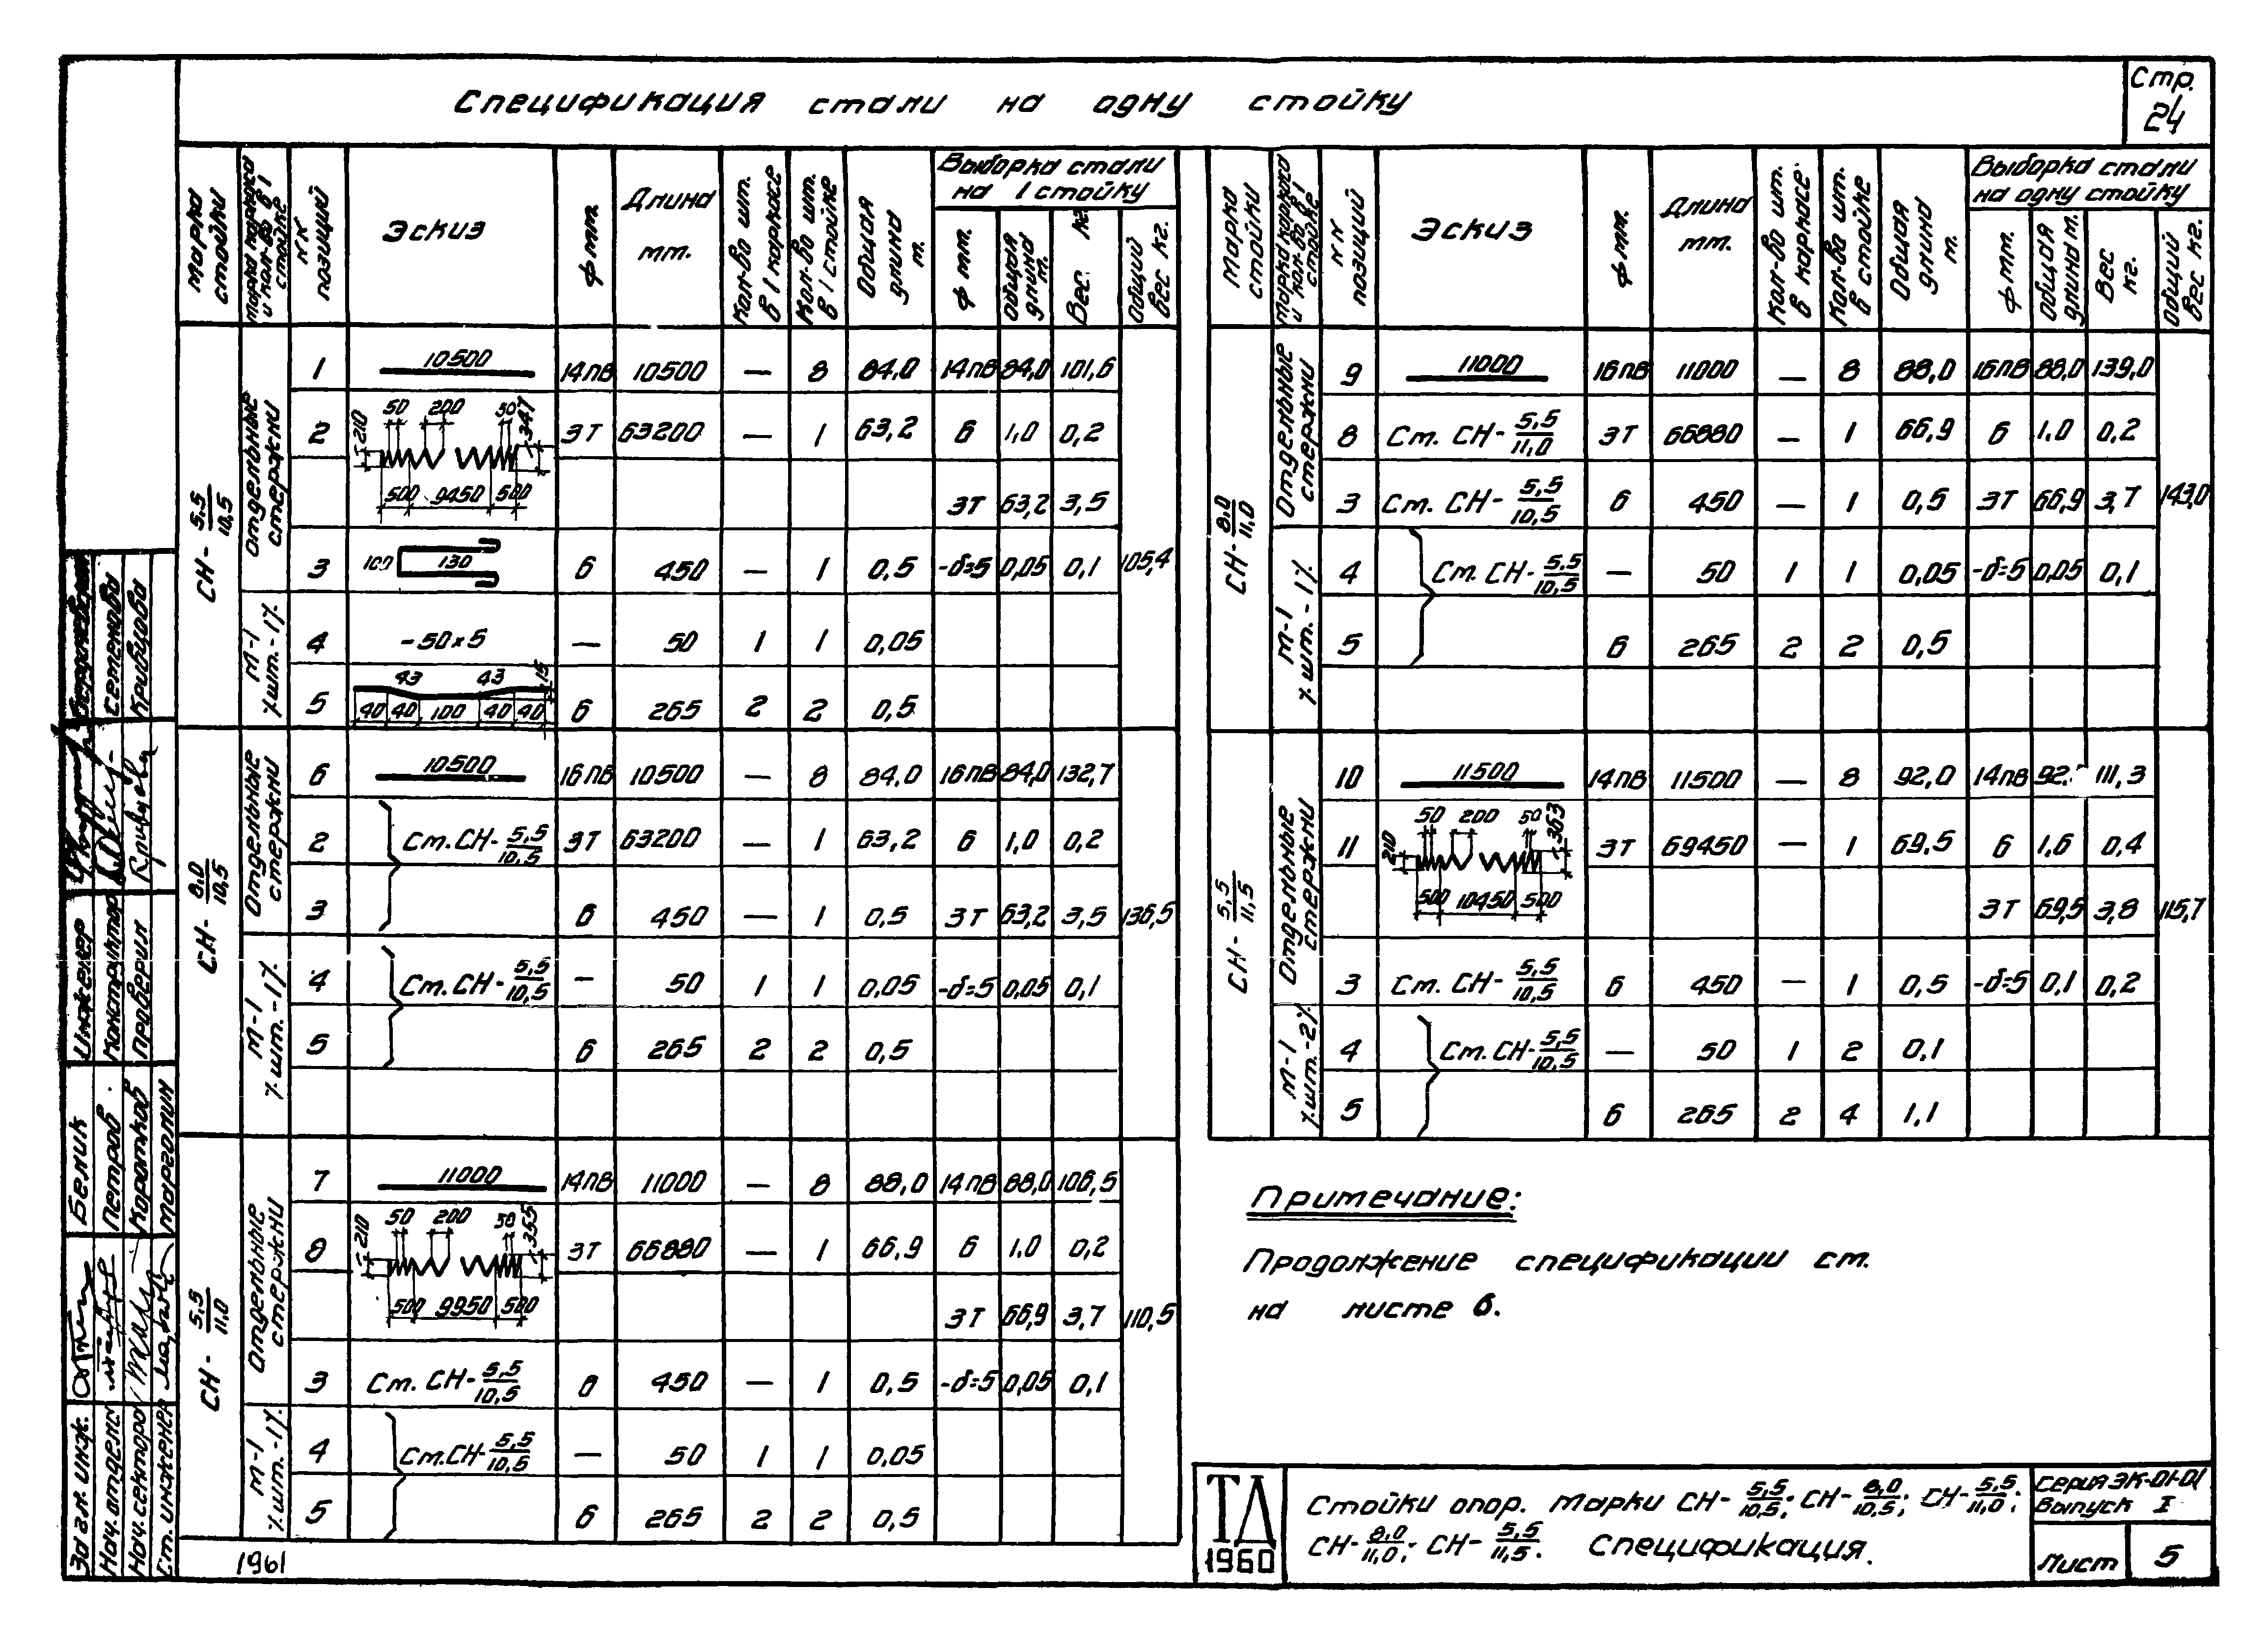 Спецификация стали на одну стойку
Стр. 24
Марка стойки | Марка каркаса и кол-во в 1 стойке | NN позиций | Эскиз | ф мм. | Длина мм. | Кол-во шт. в 1 каркасе | Кол-во шт. в 1 стойке | Общая длина м. | Выборка стали на 1 стойку
ф мм. | Общая длина м. | Вес. кг | Общий вес кг.
СН-5,5/10,5
Отдельные стержни
1 | 10500 | 14ПВ | 10500 | — | 8 | 84,0 | 14ПВ | 84,0 | 101,6
2 | 210 50 200 50 347 500 9450 500 | 3Т | 63200 | — | 1 | 63,2 | 6 | 1,0 | 0,2
3Т | 63,2 | 3,5
3 | 100 130 | 6 | 450 | — | 1 | 0,5 | -δ=5 | 0,05 | 0,1 | 105,4
М-1 /шт.-1/
4 | -50×5 | — | 50 | 1 | 1 | 0,05
5 | 43 43 15 40 40 100 40 40 | 6 | 265 | 2 | 2 | 0,5
СН-8,0/10,5
Отдельные стержни
6 | 10500 | 16ПВ | 10500 | — | 8 | 84,0 | 16ПВ | 84,0 | 132,7
2 | Ст. СН-5,5/10,5 | 3Т | 63200 | — | 1 | 63,2 | 6 | 1,0 | 0,2
3 | 6 | 450 | — | 1 | 0,5 | 3Т | 63,2 | 3,5 | 136,5
М-1 /шт.-1/
4 | Ст. СН-5,5/10,5 | — | 50 | 1 | 1 | 0,05 | -δ=5 | 0,05 | 0,1
5 | 6 | 265 | 2 | 2 | 0,5
СН-5,5/11,0
Отдельные стержни
7 | 11000 | 14ПВ | 11000 | — | 8 | 88,0 | 14ПВ | 88,0 | 106,5
8 | 210 50 200 50 355 500 9950 500 | 3Т | 66880 | — | 1 | 66,9 | 6 | 1,0 | 0,2
3Т | 66,9 | 3,7 | 110,5
3 | Ст. СН-5,5/10,5 | 6 | 450 | — | 1 | 0,5 | -δ=5 | 0,05 | 0,1
М-1 /шт.-1/
4 | Ст. СН-5,5/10,5 | — | 50 | 1 | 1 | 0,05
5 | 6 | 265 | 2 | 2 | 0,5
1961
Марка стойки | Марка каркаса и кол-во в 1 стойке | NN позиций | Эскиз | ф мм. | Длина мм. | Кол-во шт. в каркасе. | Кол-во шт. в стойке | Общая длина м. | Выборка стали на одну стойку
ф мм. | Общая длина м. | Вес кг. | Общий вес кг.
СН-8,0/11,0
Отдельные стержни
9 | 11000 | 16ПВ | 11000 | — | 8 | 88,0 | 16ПВ | 88,0 | 139,0
8 | Ст. СН-5,5/11,0 | 3Т | 66880 | — | 1 | 66,9 | 6 | 1,0 | 0,2
3 | Ст. СН-5,5/10,5 | 6 | 450 | — | 1 | 0,5 | 3Т | 66,9 | 3,7 | 143,0
М-1 /шт.-1/
4 | Ст. СН-5,5/10,5 | — | 50 | 1 | 1 | 0,05 | -δ=5 | 0,05 | 0,1
5 | 6 | 265 | 2 | 2 | 0,5
СН-5,5/11,5
Отдельные стержни
10 | 11500 | 14ПВ | 11500 | — | 8 | 92,0 | 14ПВ | 92. | 111,3
11 | 210 50 200 50 363 500 10450 500 | 3Т | 69450 | — | 1 | 69,5 | 6 | 1,6 | 0,4
3Т | 69,5 | 3,8 | 115,7
3 | Ст. СН-5,5/10,5 | 6 | 450 | — | 1 | 0,5 | -δ=5 | 0,1 | 0,2
М-1 /шт.-2/
4 | Ст. СН-5,5/10,5 | — | 50 | 1 | 2 | 0,1
5 | 6 | 265 | 2 | 4 | 1,1
Примечание:
Продолжение спецификации см.
на листе 6.
ТД
1960
Стойки опор. Марки СН-5,5/10,5; СН-8,0/10,5; СН-5,5/11,0;
СН-8,0/11,0; СН-5,5/11,5. Спецификация.
Серия ЭК-01-01
Выпуск I
Лист 5
Инженер
Конструктор Семенова
Проверил Кривцова
Зав гл. инж. Белик
Нач. отдела Петров
Нач. сектора Коротков
Ст. инженер Марголин